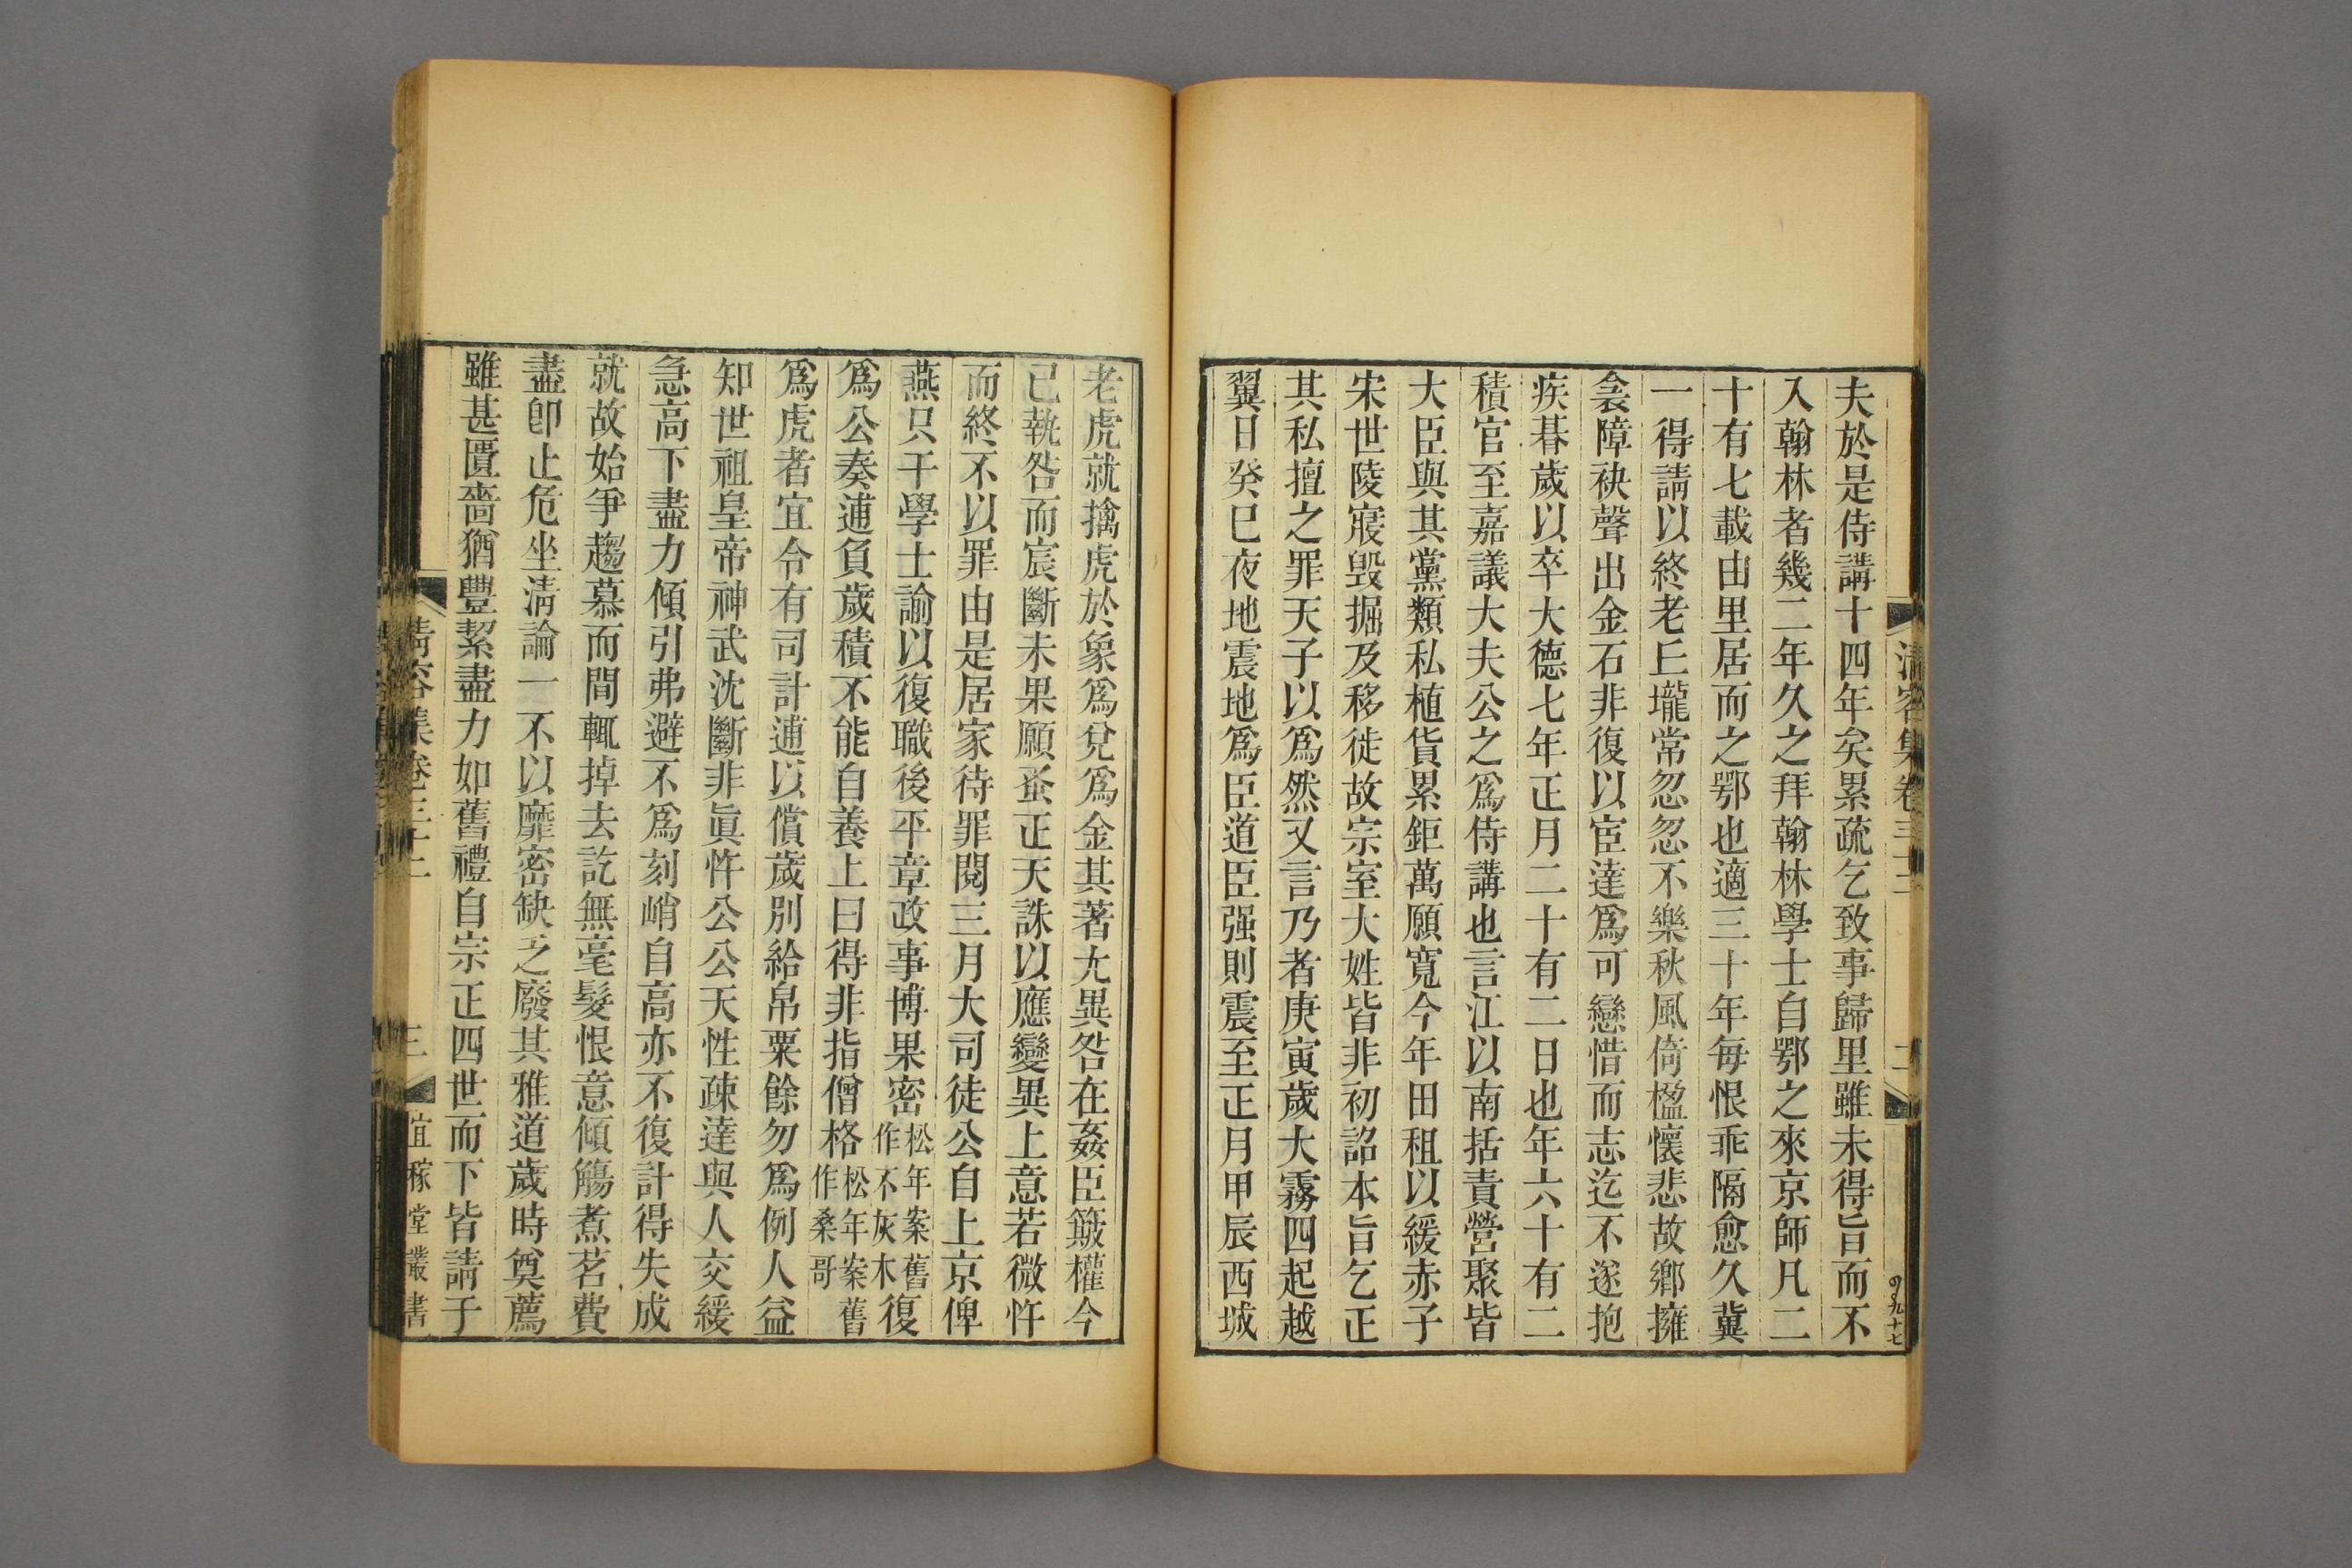 清容集卷三十二
二
夫於是侍講十四年矣累疏乞致事歸里雖未得旨而不
入翰林者幾二年久之拜翰林學士自鄂之來京師凡二
十有七載由里居而之鄂也適三十年每恨乖隔愈久冀
一得請以終老丘壠常忽忽不樂秋風倚楹懷悲故鄉擁
衾障袂聲出金石非復以宦達爲可戀惜而志迄不遂抱
疾朞歲以卒大德七年正月二十有二日也年六十有二
積官至嘉議大夫公之爲侍講也言江以南括責營聚皆
大臣與其黨類私植貨累鉅萬願寬今年田租以緩赤子
宋世陵寢毁掘及移徙故宗室大姓皆非初詔本旨乞正
其私擅之罪天子以爲然又言乃者庚寅歲大霧四起越
翼日癸巳夜地震地爲臣道臣强則震至正月甲辰西城
老虎就擒虎於象爲兌爲金其著尢異咎在姦臣簸權今
已執咎而宸斷未果願蚤正天誅以應變異上意若微忤
而終不以罪由是居家待罪閱三月大司徒公自上京俾
燕只干學士諭以復職後平章政事博果密松年案舊作不灰木復
爲公奏逋負歲積不能自養上曰得非指僧格松年案舊作桑哥
爲虎者宜令有司計逋以償歲別給帛粟餘勿爲例人益
知世祖皇帝神武沈斷非眞忤公公天性疎達與人交緩
急高下盡力傾引弗避不爲刻峭自高亦不復計得失成
就故始爭趨慕而間輒掉去訖無毫髮恨意傾觴煮茗費
盡卽止危坐淸論一不以靡密缺乏廢其雅道歲時奠薦
雖甚匱嗇猶豐絜盡力如舊禮自宗正四世而下皆請子
清容集卷三十二
三
宜稼堂叢書